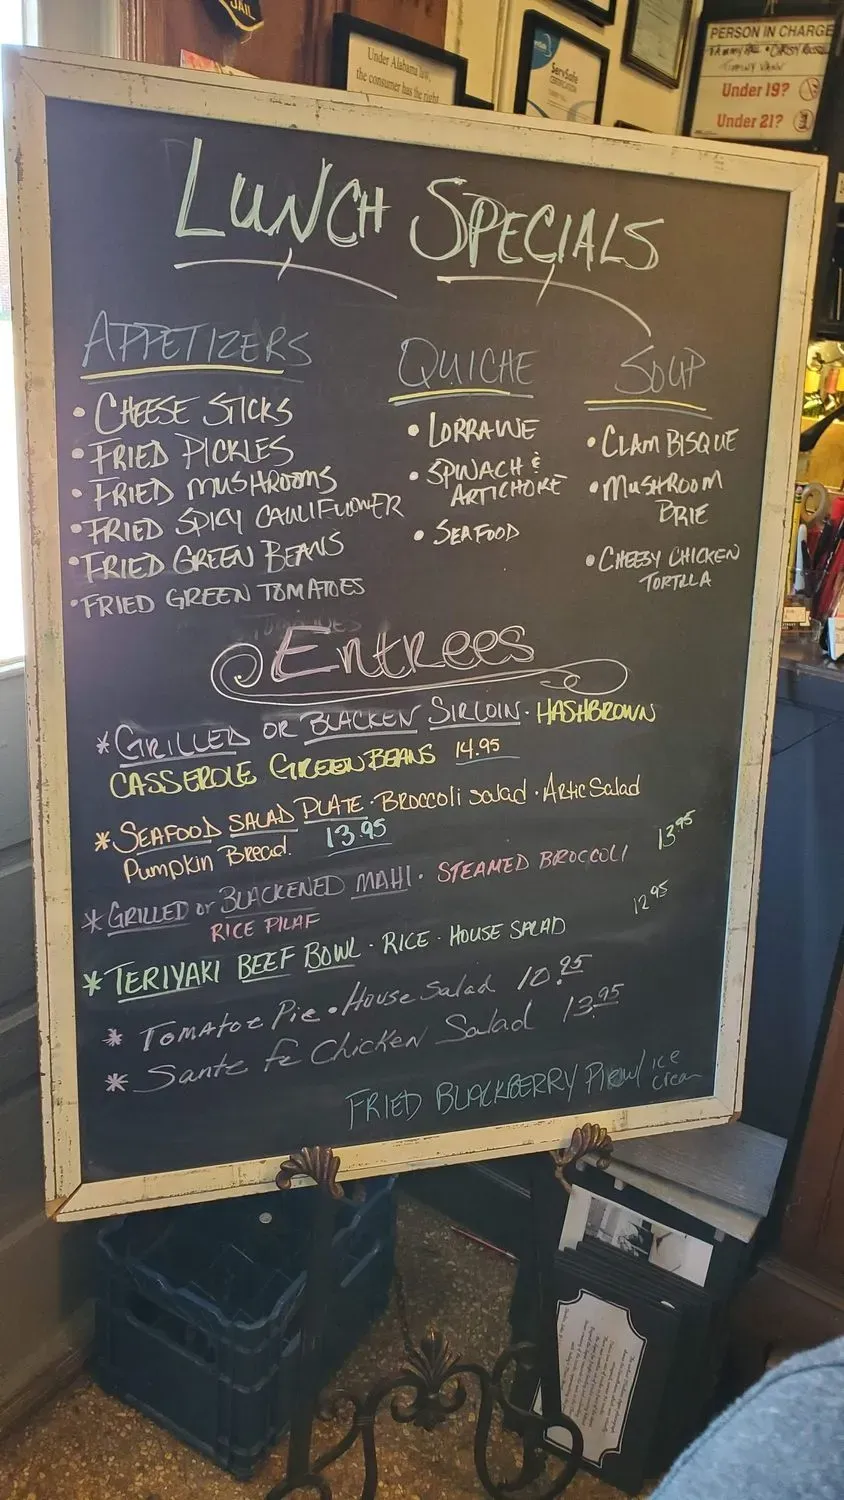 JAIL
Under Alabama law,
the consumer has the right
ServSafe
CERTIFICATION
PERSON IN CHARGE
Under 19?
Under 21?
LUNCH SPECIALS
APPETIZERS
• CHEESE STICKS
• FRIED PICKLES
• FRIED MUSHROOMS
• FRIED SPICY CAULIFLOWER
• FRIED GREEN BEANS
• FRIED GREEN TOMATOES
QUICHE
• LORRAINE
• SPINACH &
ARTICHOKE
• SEAFOOD
SOUP
• CLAM BISQUE
• MUSHROOM
BRIE
• CHEESY CHICKEN
TORTILLA
Entrees
* GRILLED OR BLACKEN SIRLOIN · HASHBROWN
CASSEROLE GREEN BEANS 14.95
* SEAFOOD SALAD PLATE · Broccoli salad · Artic Salad
Pumpkin Bread. 13.95
* GRILLED or BLACKENED MAHI · STEAMED BROCCOLI 13.95
RICE PILAF
* TERIYAKI BEEF BOWL · RICE · HOUSE SALAD 12.95
* Tomatoe Pie • House Salad 10.95
* Sante Fe Chicken Salad 13.95
FRIED BLACKBERRY Pie w/ ice
cream